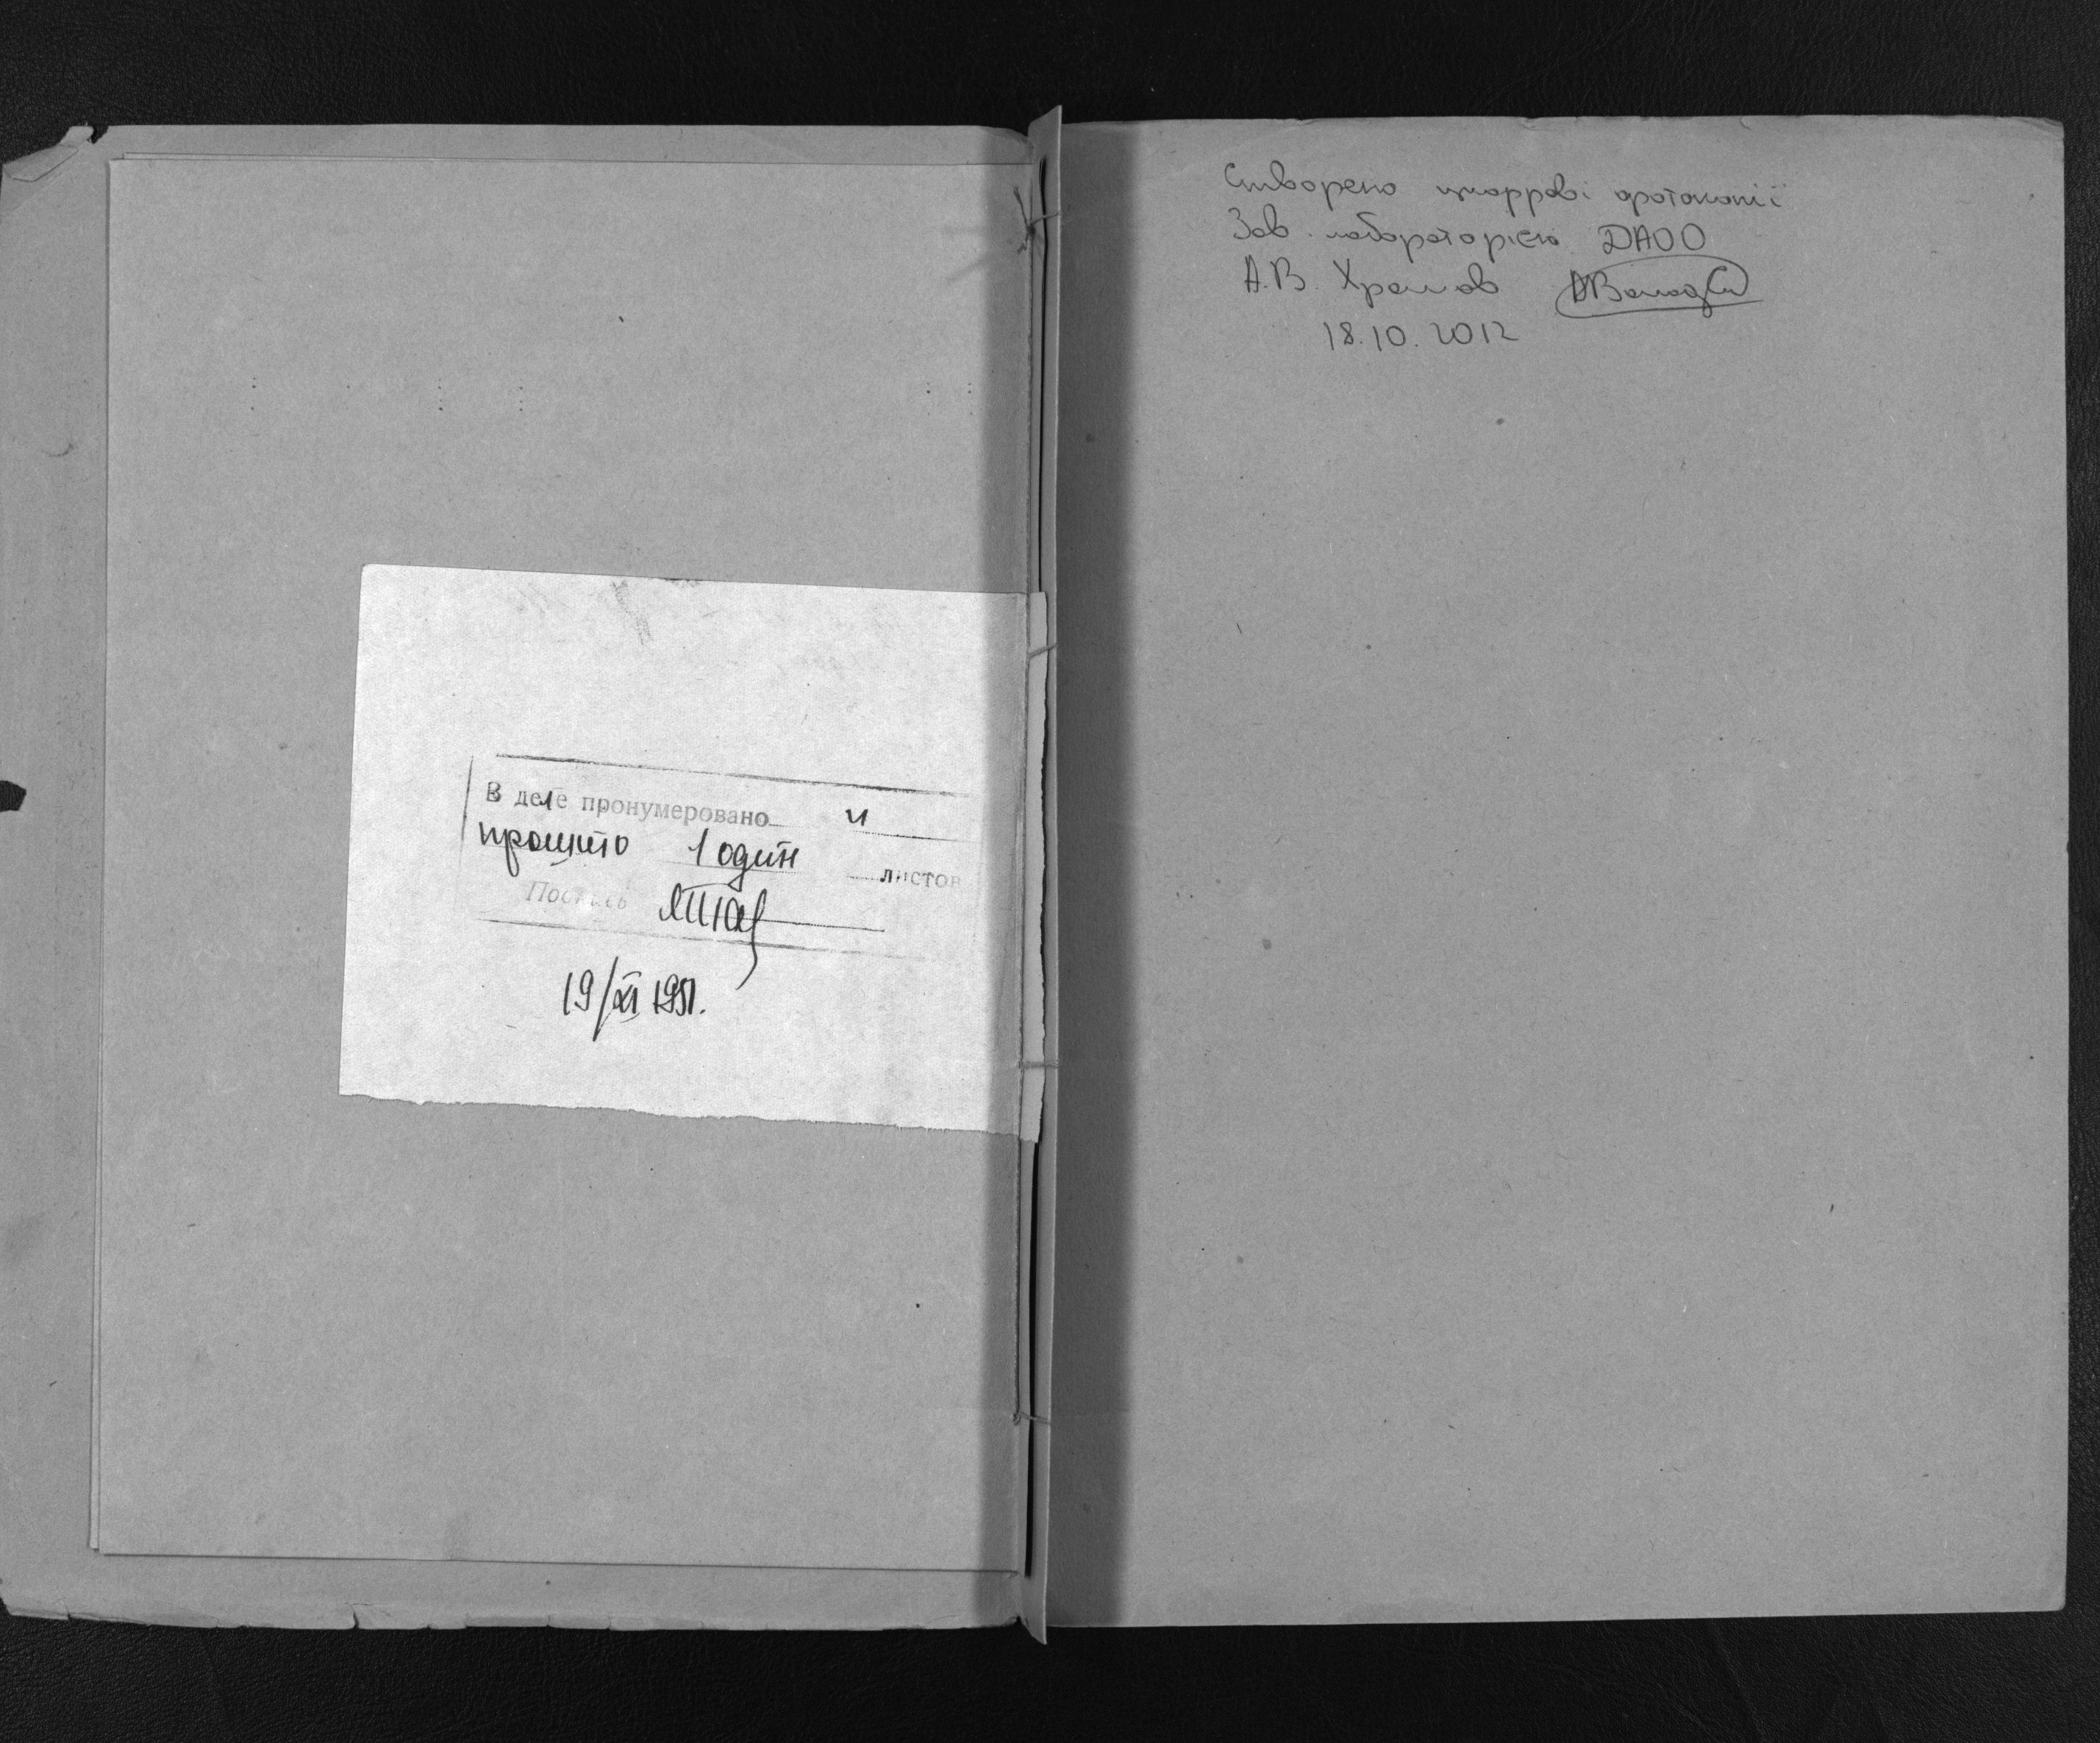 В деле пронумеровано и
прошито 1 один листов
19/XI 1951.
Створено цифрові фотокопії
Зав. лабораторією ДАОО
А.В. Храмов
18.10.2012